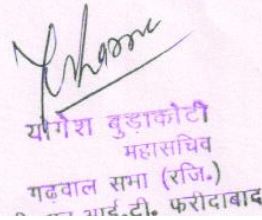 योगेश बुड़ाकोटी
महासचिव
गढ़वाल सभा (रजि.)
आई.टी. फरीदाबाद